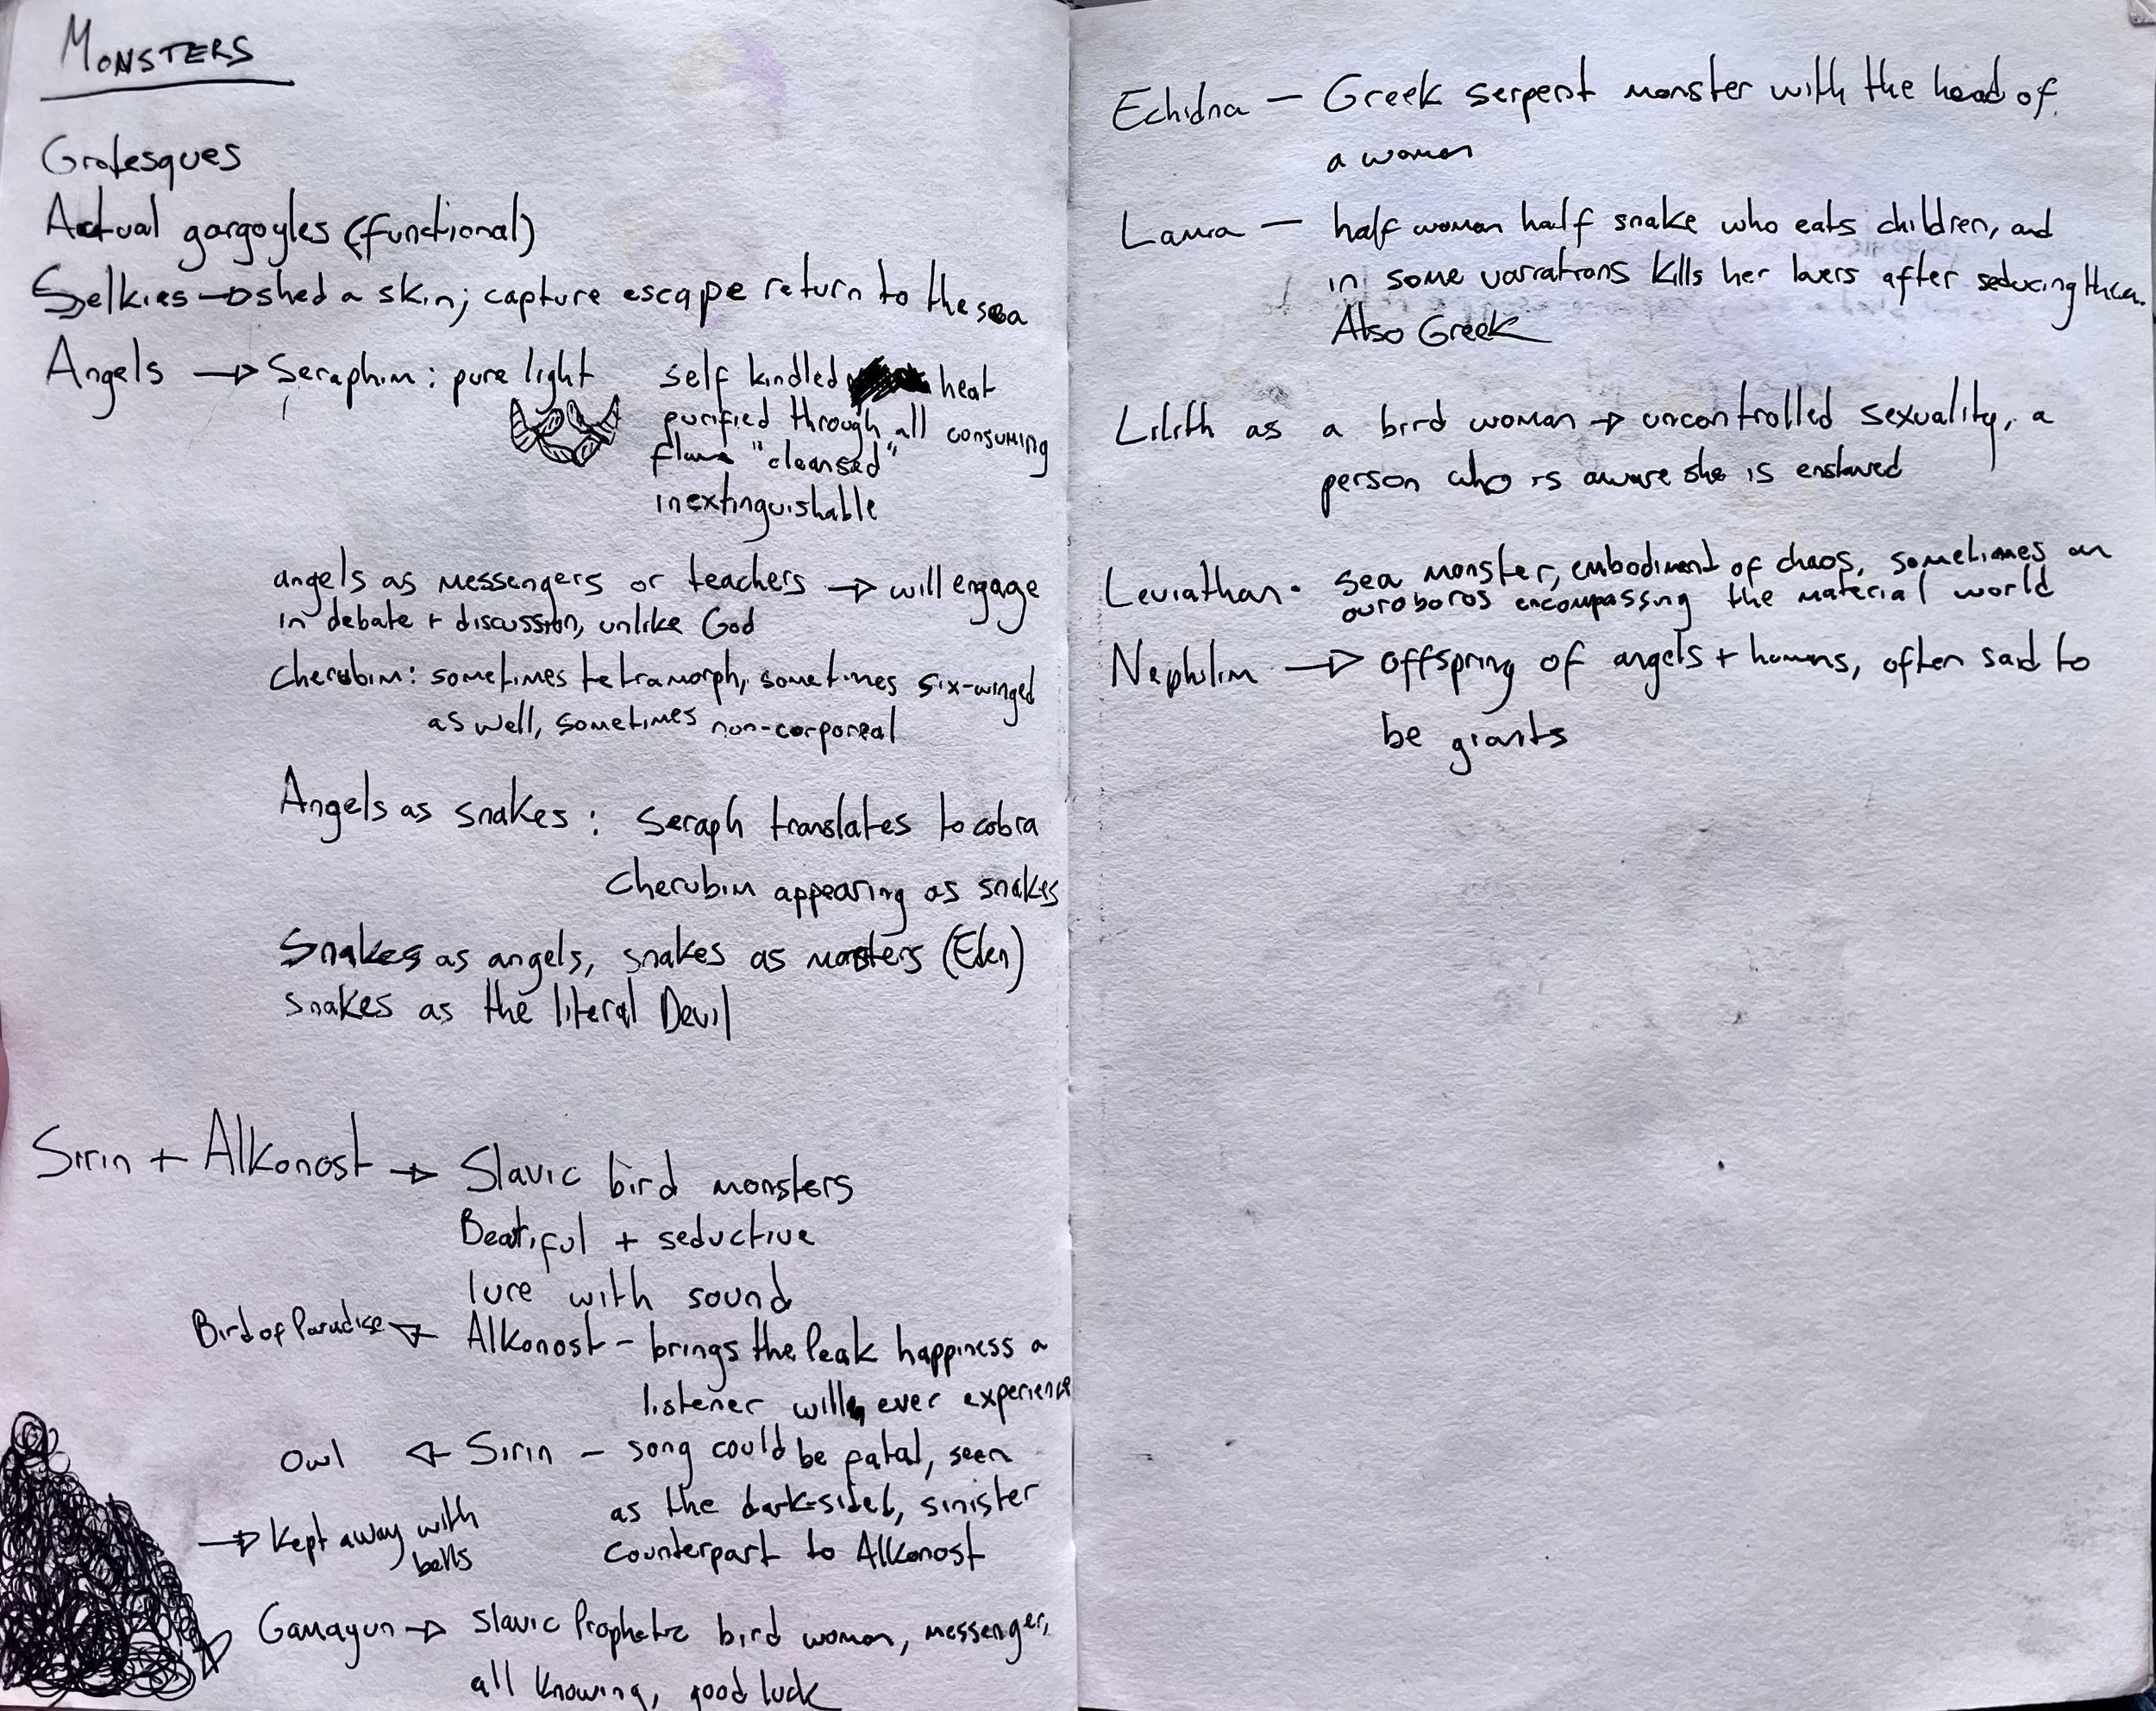 MONSTERS
Grotesques
Actual gargoyles (functional)
Selkies → shed a skin; capture escape return to the sea
Angels → Seraphim: pure light
self kindled heat
purified through all consuming
flame "cleansed"
inextinguishable
angels as messengers or teachers → will engage
in debate + discussion, unlike God
Cherubim: sometimes tetramorph, sometimes six-winged
as well, sometimes non-corporeal
Angels as snakes: Seraph translates to cobra
Cherubim appearing as snakes
Snakes as angels, snakes as monsters (Eden)
snakes as the literal Devil
Sirin + Alkonost → Slavic bird monsters
Beatiful + seductive
lure with sound
Bird of Paradise ← Alkonost - brings the Peak happiness a
listener will ever experience
Owl ← Sirin - song could be fatal, seen
as the dark-sided, sinister
→ kept away with
bells
counterpart to Alkonost
Gamayun → Slavic Prophetic bird woman, messenger,
all knowing, good luck
Echidna - Greek serpent monster with the head of
a woman
Lamia - half woman half snake who eats children, and
in some variations kills her lovers after seducing them.
Also Greek
Lilith as a bird woman → uncontrolled sexuality, a
person who is aware she is enslaved
Leviathan - sea monster, embodiment of chaos, sometimes an
ouroboros encompassing the material world
Nephilim → offspring of angels + humans, often said to
be giants